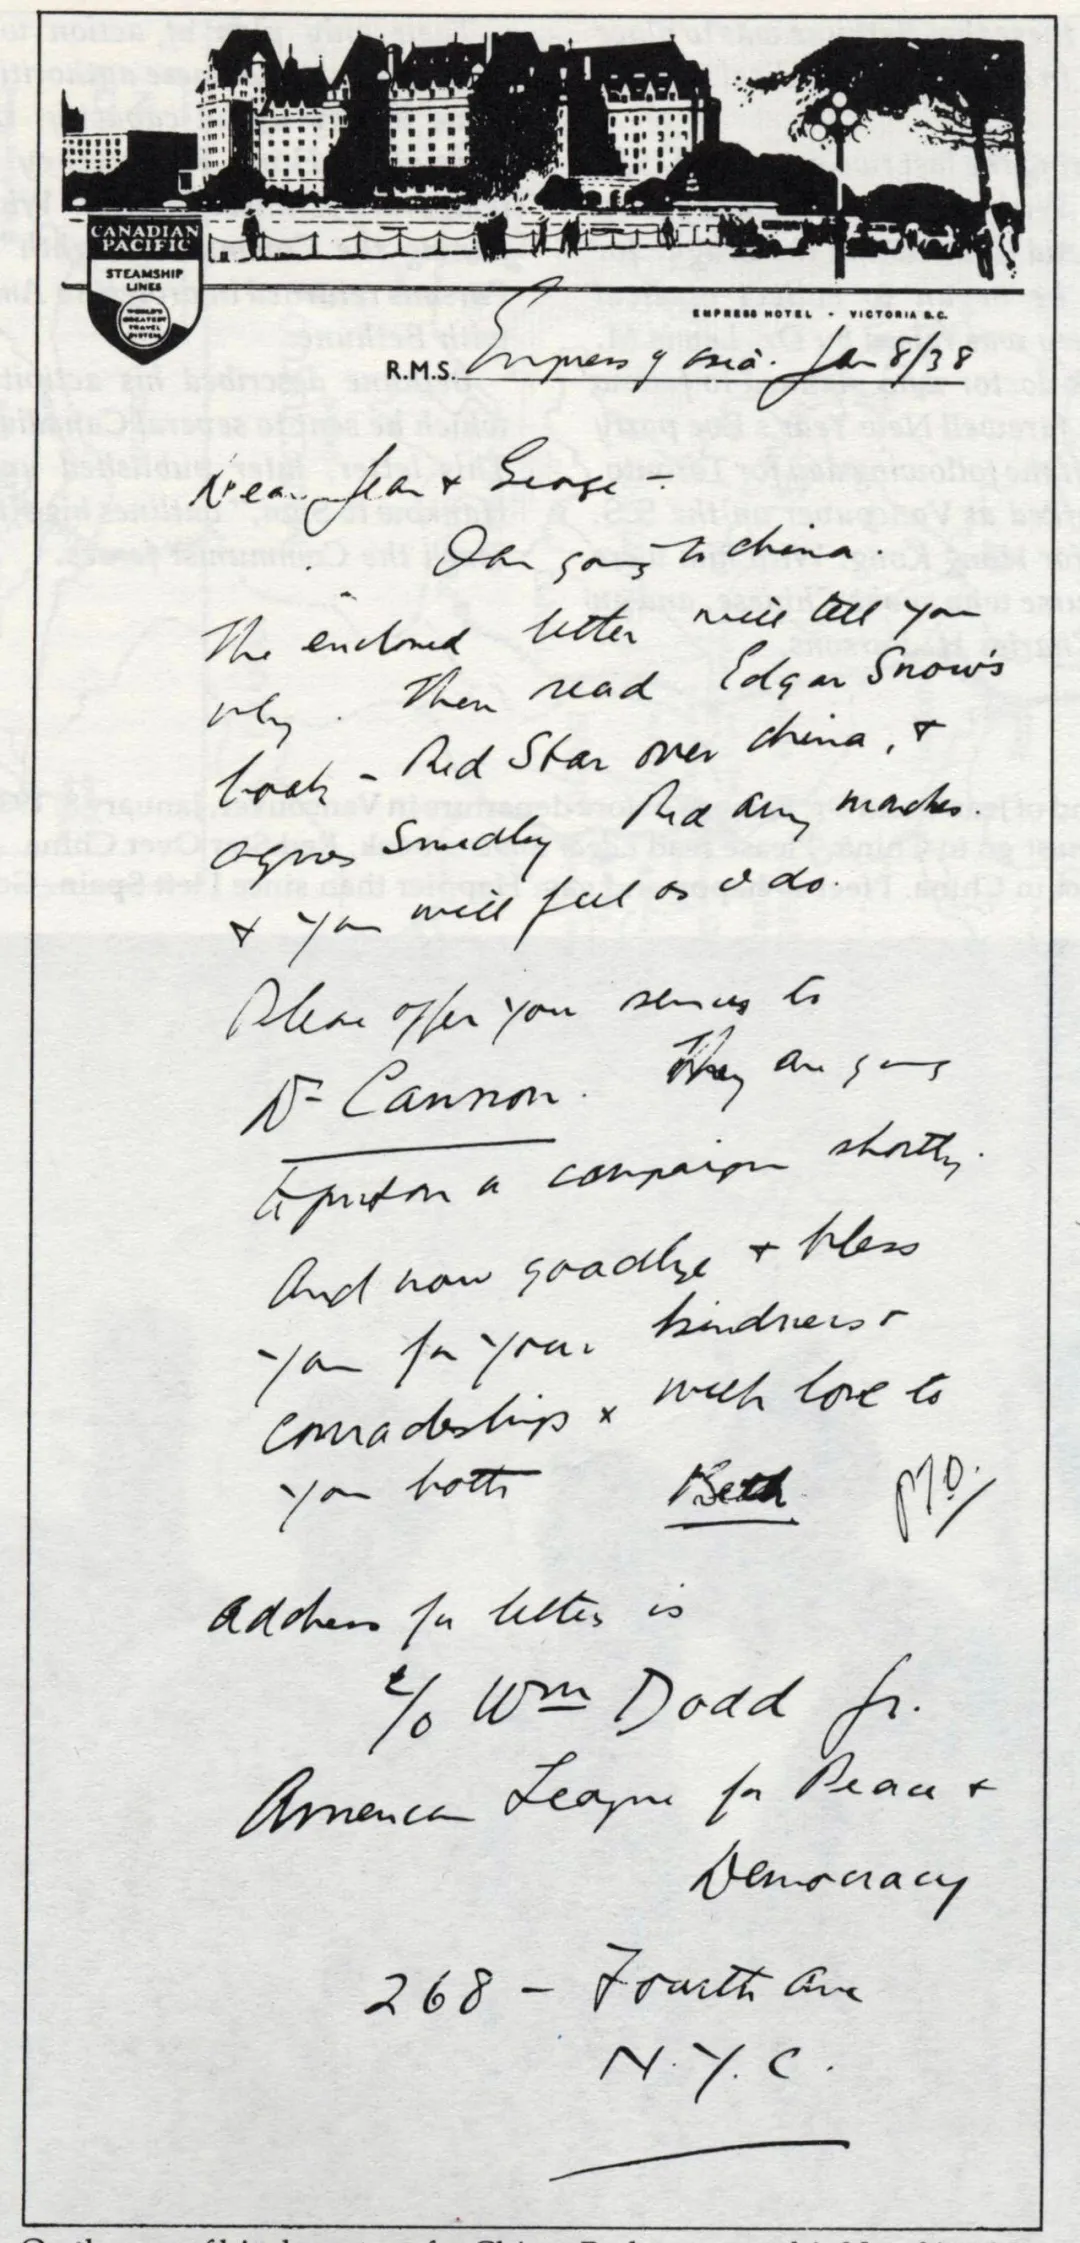 CANADIAN
PACIFIC
STEAMSHIP
LINES
WORLD'S
GREATEST
TRAVEL
SYSTEM
EMPRESS HOTEL - VICTORIA B.C.
R.M.S. Empress of Asia. Jan 8/38
Dear Jean & George –
I am going to China.
The enclosed letter will tell you
why. Then read Edgar Snow's
book – Red Star over China, &
Agnes Smedley Red Army marches.
& you will feel as I do.
Please offer your services to
Dr Cannon. They are going
to put on a campaign shortly.
And now goodbye & bless
you for your kindness &
comradeships & with love to
you both Beth
P.T.O.
Address for letters is
c/o Wm Dodd Jr.
American League for Peace &
Democracy
268 – Fourth Ave
N.Y.C.